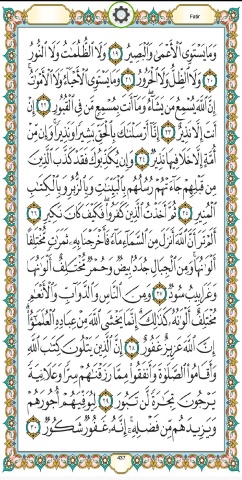 Fatir
وَمَا يَسْتَوِي الْأَعْمَىٰ وَالْبَصِيرُ ﴿١٩﴾ وَلَا الظُّلُمَاتُ وَلَا النُّورُ
﴿٢٠﴾ وَلَا الظِّلُّ وَلَا الْحَرُورُ ﴿٢١﴾ وَمَا يَسْتَوِي الْأَحْيَاءُ وَلَا الْأَمْوَاتُ
إِنَّ اللَّهَ يُسْمِعُ مَن يَشَاءُ وَمَا أَنتَ بِمُسْمِعٍ مَّن فِي الْقُبُورِ ﴿٢٢﴾ إِنْ
أَنتَ إِلَّا نَذِيرٌ ﴿٢٣﴾ إِنَّا أَرْسَلْنَاكَ بِالْحَقِّ بَشِيرًا وَنَذِيرًا وَإِن مِّنْ
أُمَّةٍ إِلَّا خَلَا فِيهَا نَذِيرٌ ﴿٢٤﴾ وَإِن يُكَذِّبُوكَ فَقَدْ كَذَّبَ الَّذِينَ
مِن قَبْلِهِمْ جَاءَتْهُمْ رُسُلُهُم بِالْبَيِّنَاتِ وَبِالزُّبُرِ وَبِالْكِتَابِ
الْمُنِيرِ ﴿٢٥﴾ ثُمَّ أَخَذْتُ الَّذِينَ كَفَرُوا فَكَيْفَ كَانَ نَكِيرِ ﴿٢٦﴾
أَلَمْ تَرَ أَنَّ اللَّهَ أَنزَلَ مِنَ السَّمَاءِ مَاءً فَأَخْرَجْنَا بِهِ ثَمَرَاتٍ مُّخْتَلِفًا
أَلْوَانُهَا وَمِنَ الْجِبَالِ جُدَدٌ بِيضٌ وَحُمْرٌ مُّخْتَلِفٌ أَلْوَانُهَا
وَغَرَابِيبُ سُودٌ ﴿٢٧﴾ وَمِنَ النَّاسِ وَالدَّوَابِّ وَالْأَنْعَامِ
مُخْتَلِفٌ أَلْوَانُهُ كَذَٰلِكَ إِنَّمَا يَخْشَى اللَّهَ مِنْ عِبَادِهِ الْعُلَمَاءُ
إِنَّ اللَّهَ عَزِيزٌ غَفُورٌ ﴿٢٨﴾ إِنَّ الَّذِينَ يَتْلُونَ كِتَابَ اللَّهِ
وَأَقَامُوا الصَّلَاةَ وَأَنفَقُوا مِمَّا رَزَقْنَاهُمْ سِرًّا وَعَلَانِيَةً
يَرْجُونَ تِجَارَةً لَّن تَبُورَ ﴿٢٩﴾ لِيُوَفِّيَهُمْ أُجُورَهُمْ
وَيَزِيدَهُم مِّن فَضْلِهِ إِنَّهُ غَفُورٌ شَكُورٌ ﴿٣٠﴾
437